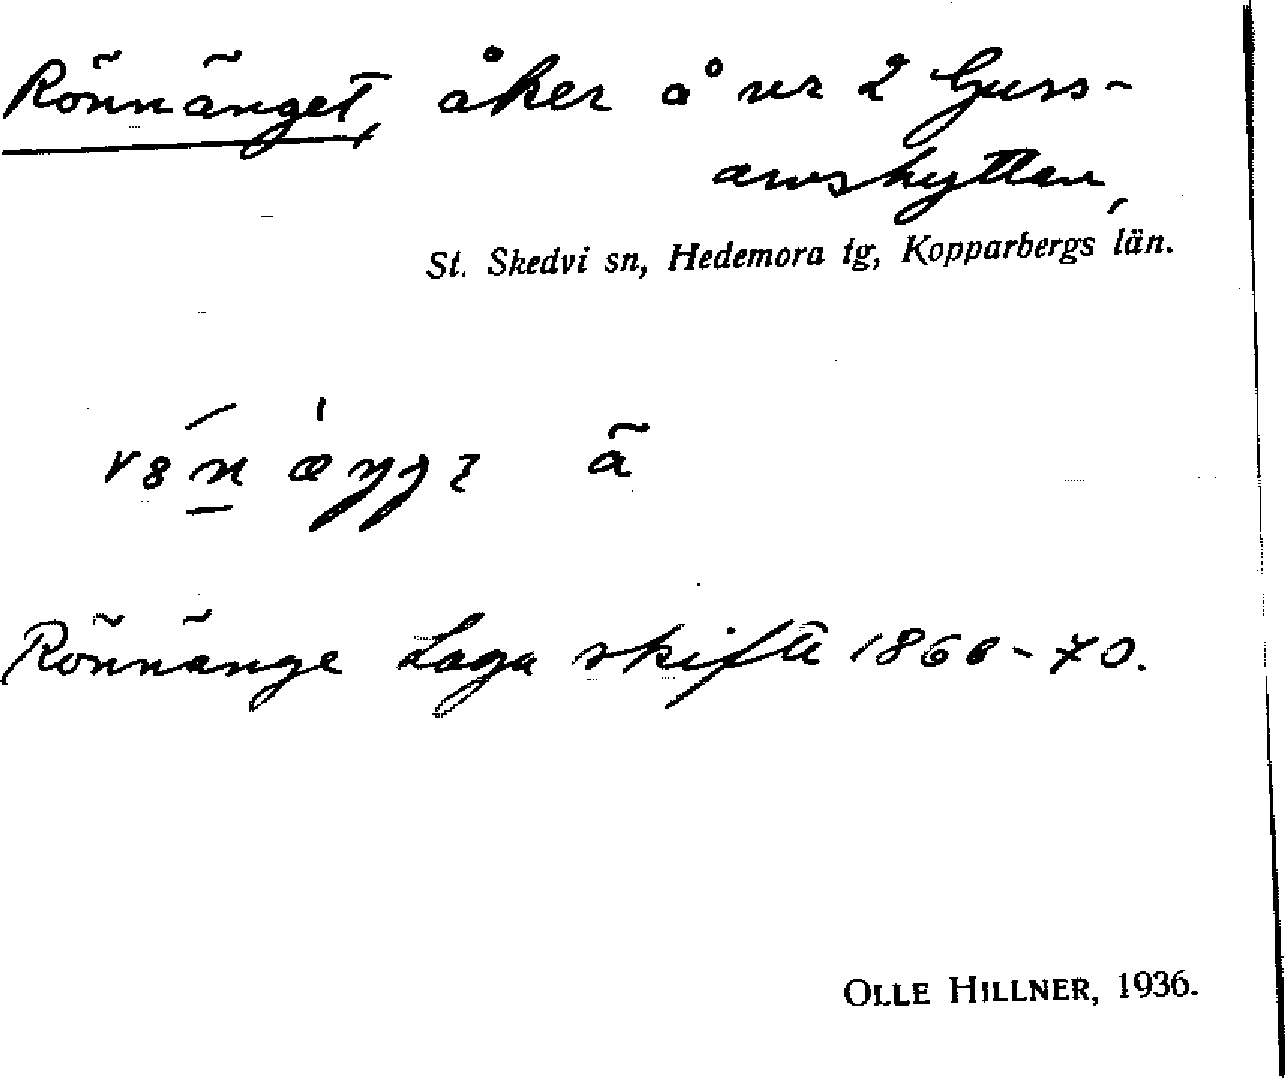 Rönnänget, åker å nr 2 Guss-
arvshyttan,
St. Skedvi sn, Hedemora tg, Kopparbergs län.
ã
Rönnänge Laga skifte 1866-70.
OLLE HILLNER, 1936.